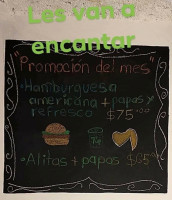 Les van a
encantar
"Promoción del mes"
•Hamburguesa
americana + papas y
refresco $75.00
•Alitas + papas